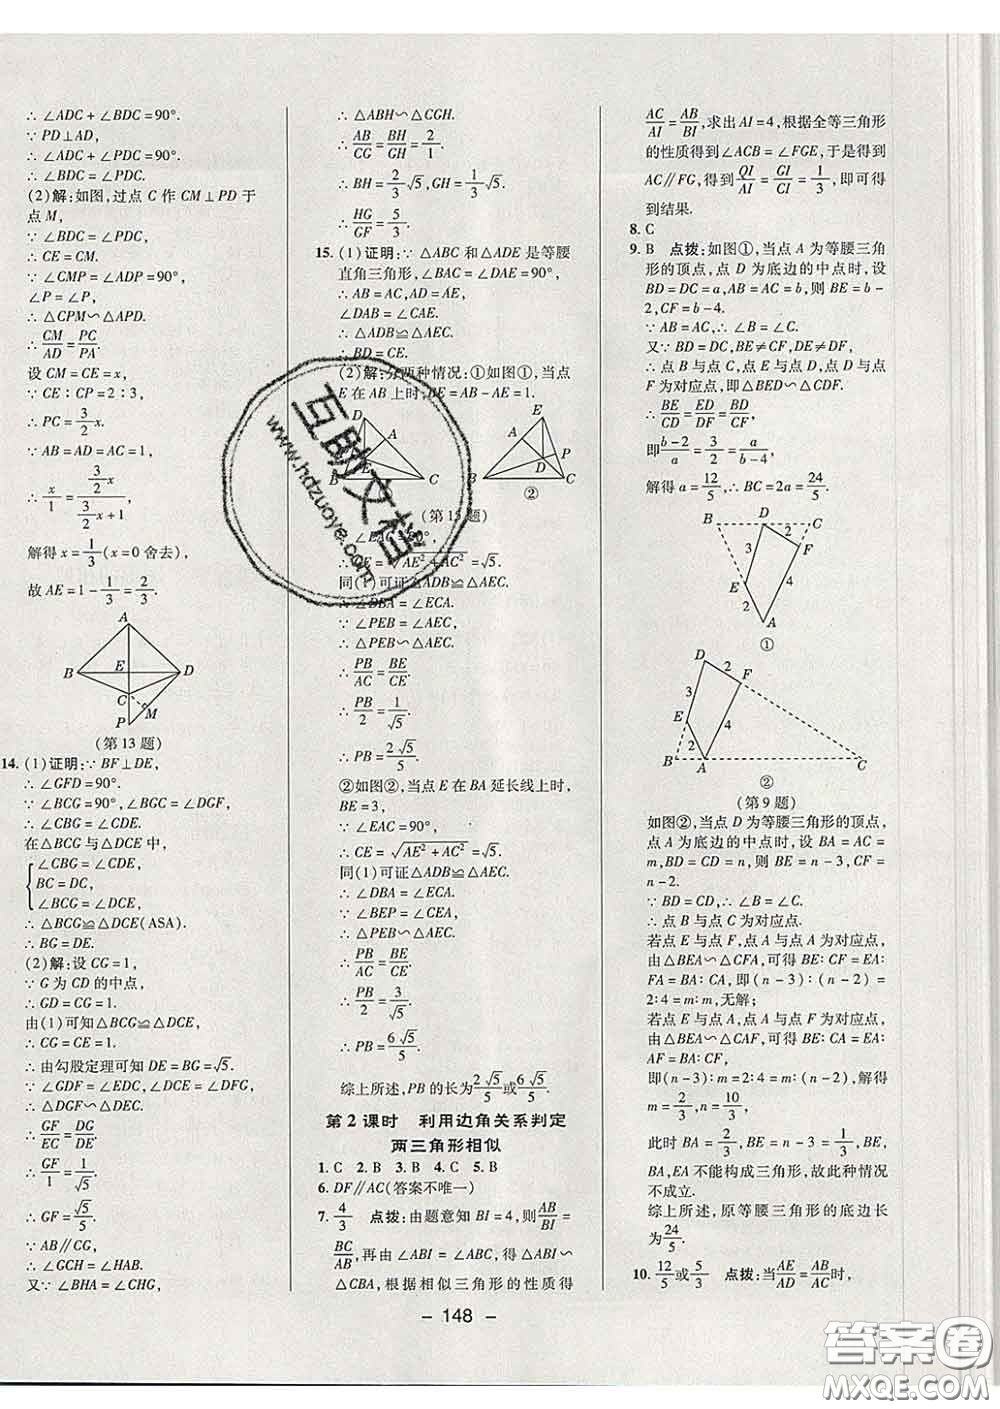 ∴ ∠ADC + ∠BDC = 90°.
∵ PD⊥AD,
∴ ∠ADC + ∠PDC = 90°.
∴ ∠BDC = ∠PDC.
(2)解:如图,过点 C 作 CM⊥PD 于
点 M,
∵ ∠BDC = ∠PDC,
∴ CE = CM.
∵ ∠CMP = ∠ADP = 90°,
∠P = ∠P,
∴ △CPM∽△APD.
∴ CM/AD = PC/PA.
设 CM = CE = x,
∵ CE∶CP = 2∶3,
∴ PC = 3/2 x.
∵ AB = AD = AC = 1,
∴ x/1 = (3/2 x)/(3/2 x + 1).
解得 x = 1/3 (x = 0 舍去),
故 AE = 1 - 1/3 = 2/3.
A
B E D
C
M
P
(第 13 题)
14. (1)证明:∵ BF⊥DE,
∴ ∠GFD = 90°.
∵ ∠BCG = 90°,∠BGC = ∠DGF,
∴ ∠CBG = ∠CDE.
在△BCG 与△DCE 中,
∠CBG = ∠CDE,
BC = DC,
∠BCG = ∠DCE,
∴ △BCG≌△DCE(ASA).
∴ BG = DE.
(2)解:设 CG = 1,
∵ G 为 CD 的中点,
∴ GD = CG = 1.
由(1)可知△BCG≌△DCE,
∴ CG = CE = 1.
∴ 由勾股定理可知 DE = BG = √5.
∵ ∠GDF = ∠EDC,∠DCE = ∠DFG,
∴ △DGF∽△DEC.
∴ GF/EC = DG/DE.
∴ GF/1 = 1/√5.
∴ GF = √5/5.
∵ AB∥CG,
∴ ∠GCH = ∠HAB.
又∵ ∠BHA = ∠CHG,
∴ △ABH∽△CGH.
∴ AB/CG = BH/GH = 2/1.
∴ BH = 2/3 √5,GH = 1/3 √5.
∴ HG/GF = 5/3.
15. (1)证明:∵ △ABC 和△ADE 是等腰
直角三角形,∠BAC = ∠DAE = 90°,
∴ AB = AC,AD = AE,
∠DAB = ∠CAE.
∴ △ADB≌△AEC.
∴ BD = CE.
(2)解:分两种情况:①如图①,当点
E 在 AB 上时,BE = AB - AE = 1.
D A E B C
E A P D B C
②
(第 15 题)
∵ ∠EAC = 90°,
∴ CE = √(AE² + AC²) = √5.
同(1)可证△ADB≌△AEC.
∴ ∠DBA = ∠ECA.
∵ ∠PEB = ∠AEC,
∴ △PEB∽△AEC.
∴ PB/AC = BE/CE.
∴ PB/2 = 1/√5.
∴ PB = 2√5/5.
②如图②,当点 E 在 BA 延长线上时,
BE = 3,
∵ ∠EAC = 90°,
∴ CE = √(AE² + AC²) = √5.
同(1)可证△ADB≌△AEC.
∴ ∠DBA = ∠ECA.
∵ ∠BEP = ∠CEA,
∴ △PEB∽△AEC.
∴ PB/AC = BE/CE.
∴ PB/2 = 3/√5.
∴ PB = 6√5/5.
综上所述,PB 的长为 2√5/5 或 6√5/5.
第 2 课时 利用边角关系判定
两三角形相似
1. C 2. B 3. B 4. C 5. B
6. DF∥AC(答案不唯一)
7. 4/3 点拨:由题意知 BI = 4,则 AB/BI =
BC/AB,再由∠ABI = ∠ABC,得△ABI∽
△CBA,根据相似三角形的性质得
AC/AI = AB/BI,求出 AI = 4,根据全等三角形
的性质得到∠ACB = ∠FGE,于是得到
AC∥FG,得到 QI/AI = GI/CI = 1/3,即可得
到结果.
8. C
9. B 点拨:如图①,当点 A 为等腰三角
形的顶点,点 D 为底边的中点时,设
BD = DC = a,AB = AC = b,则 BE = b -
2,CF = b - 4.
∵ AB = AC,∴ ∠B = ∠C.
又∵ BD = DC,BE≠CF,DE≠DF,
∴ 点 B 与点 C 为对应点,点 E 与点
F 为对应点,即△BED∽△CDF.
∴ BE/CD = ED/DF = BD/CF,
即 (b-2)/a = 3/2 = a/(b-4),
解得 a = 12/5,∴ BC = 2a = 24/5.
B D C
2
3 F
E 4
2
A
①
D
2 F
3
E 4
2
B A C
②
(第 9 题)
如图②,当点 D 为等腰三角形的顶点,
点 A 为底边的中点时,设 BA = AC =
m,BD = CD = n,则 BE = n - 3,CF =
n - 2.
∵ BD = CD,∴ ∠B = ∠C.
∴ 点 B 与点 C 为对应点.
若点 E 与点 F,点 A 与点 A 为对应点,
由△BEA∽△CFA,可得 BE∶CF = EA∶
FA = BA∶CA,即(n - 3)∶(n - 2) =
2∶4 = m∶m,无解;
若点 E 与点 A,点 A 与点 F 为对应点,
由△BEA∽△CAF,可得 BE∶CA = EA∶
AF = BA∶CF,
即(n - 3)∶m = 2∶4 = m∶(n - 2),解得
m = 2/3,n = 10/3.
此时 BA = 2/3,BE = 1/3,EA = 2.
BA,EA 不能构成三角形,故此种情况
不成立.
综上所述,原等腰三角形的底边长
为 24/5.
10. 12/5 或 5/3 点拨:当 AE/AD = AB/AC 时,
- 148 -
互助文档
www.hdzuoye.com
答案圈
MXQE.COM